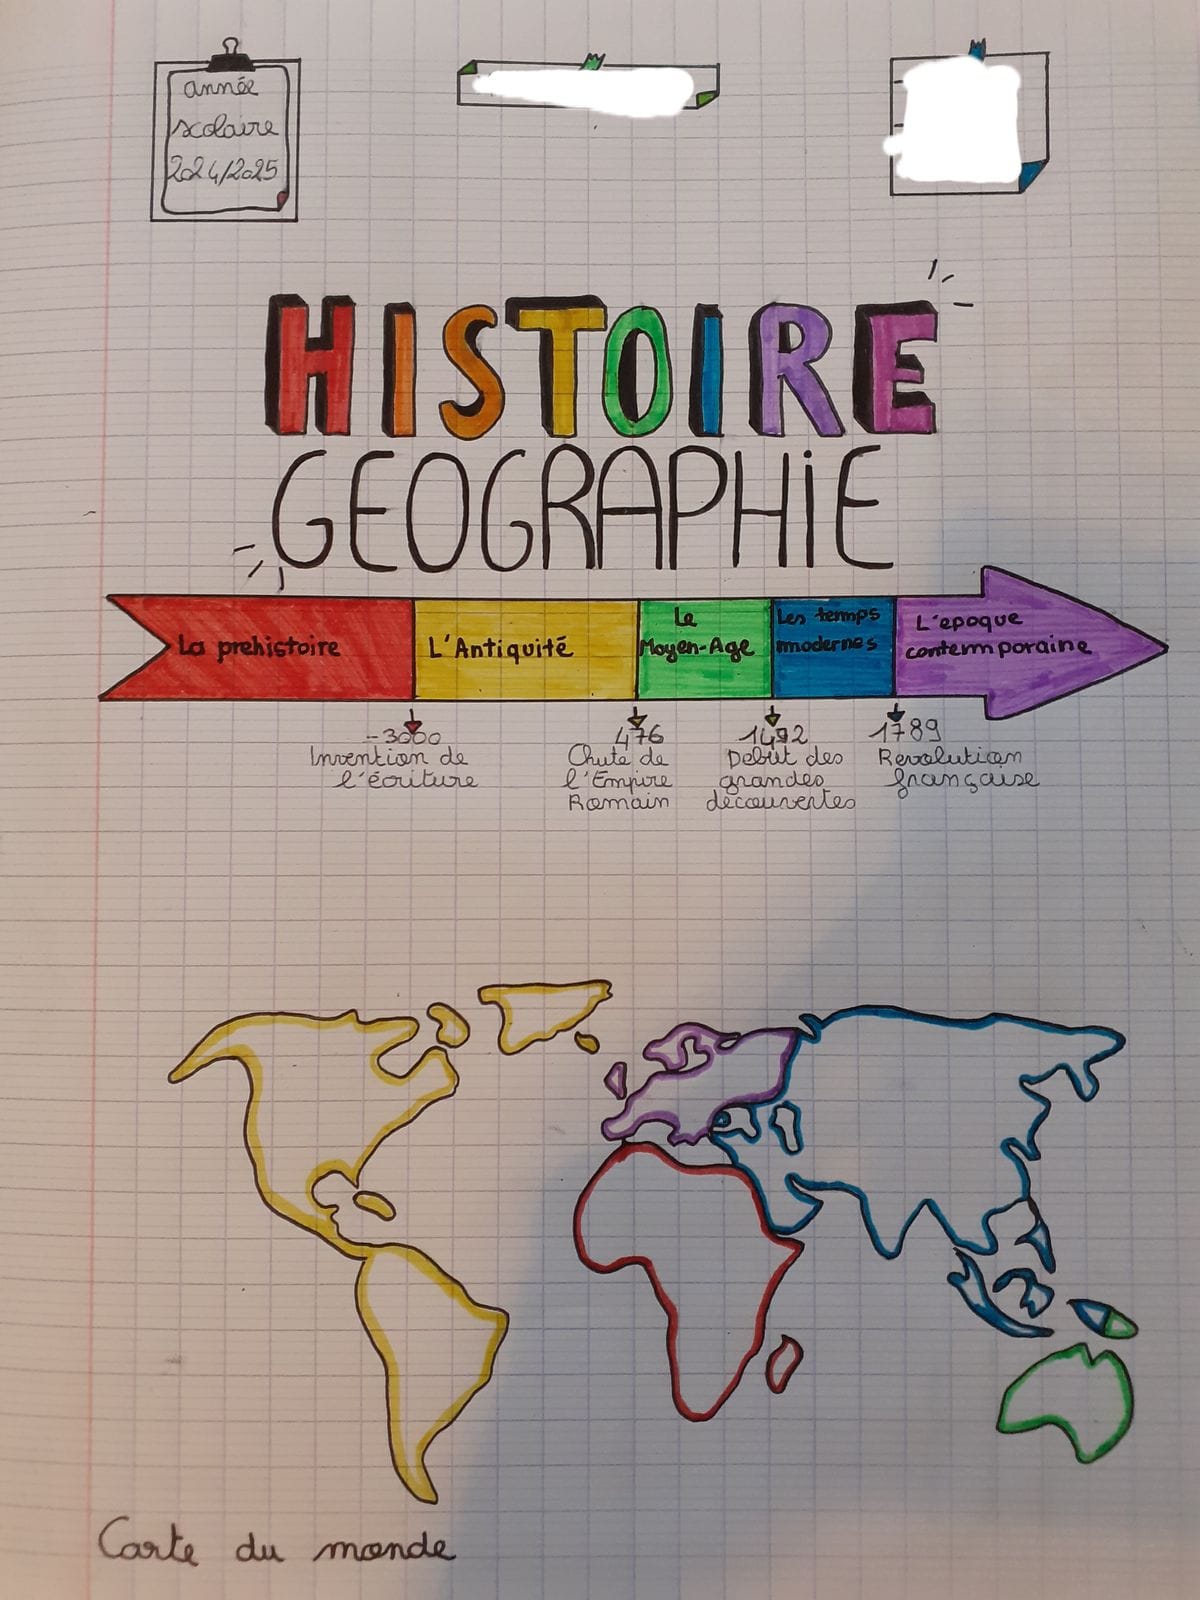 année
scolaire
2024/2025
HISTOIRE
GEOGRAPHIE
La prehistoire
L'Antiquité
Le
Moyen-Age
Les temps
modernes
L'epoque
contemporaine
-3000
Invention de
l'écriture
476
Chute de
l'Empire
Romain
1492
Debut des
grandes
découvertes
1789
Revolution
française
Carte du monde